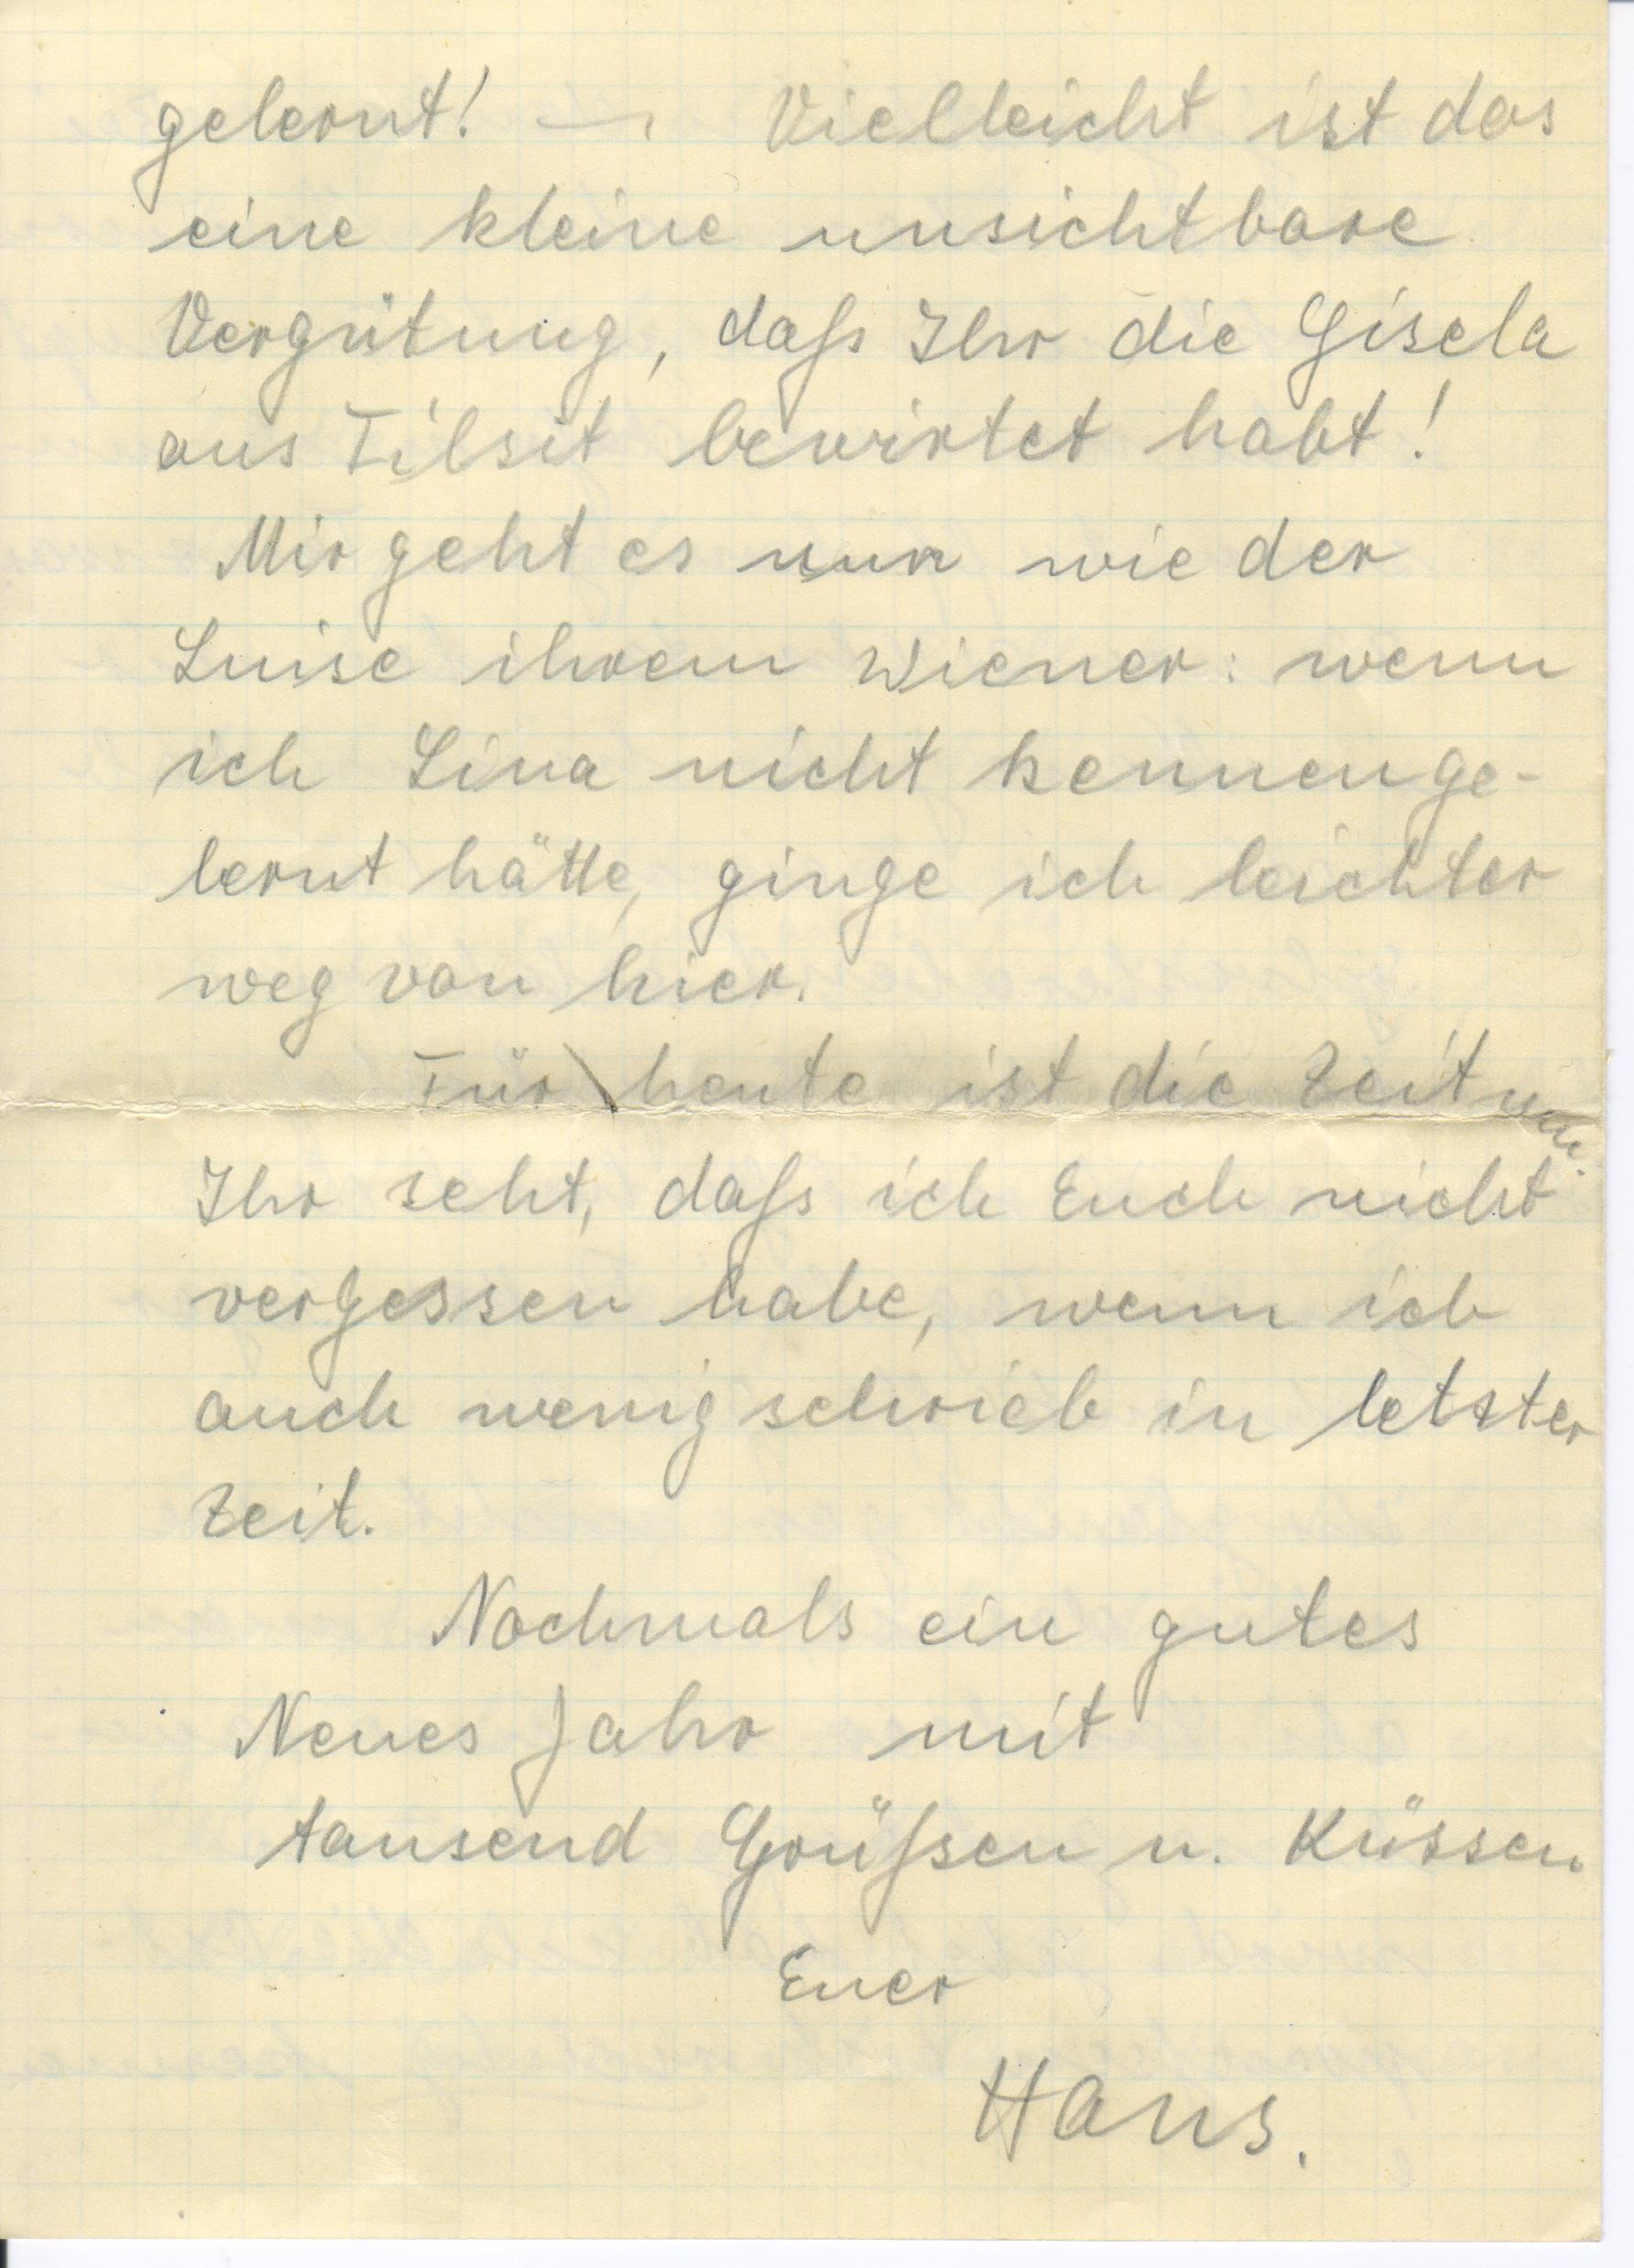 gelernt! — Vielleicht ist das
eine kleine unsichtbare
Vergütung, daß Ihr die Gisela
aus Tilsit bewirtet habt!
Mir geht es nun wie der
Luise ihrem Wiener: wenn
ich Lina nicht kennenge-
lernt hätte, ginge ich leichter
weg von hier.
Für heute ist die Zeit um.
Ihr seht, daß ich Euch nicht
vergessen habe, wenn ich
auch wenig schrieb in letzter
Zeit.
Nochmals ein gutes
Neues Jahr mit
tausend Grüßen u. Küssen
Euer
Hans.